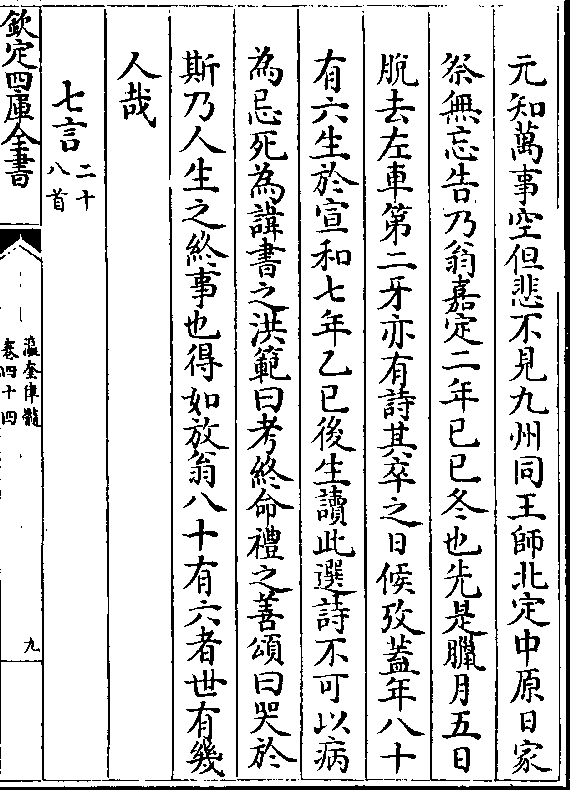 元知萬事空但悲不見九州同王師北定中原日家
祭無忘告乃翁嘉定二年已已冬也先是臘月五日
脫去左車第二牙亦有詩其卒之日候攷葢年八十
有六生於宣和七年乙已後生讀此選詩不可以病
為忌死為諱書之洪範曰考終命禮之善頌曰哭於
斯乃人生之終事也得如放翁八十有六者世有幾
人哉
七言二十八首
欽定四庫全書
瀛奎律髓
卷四十四
九